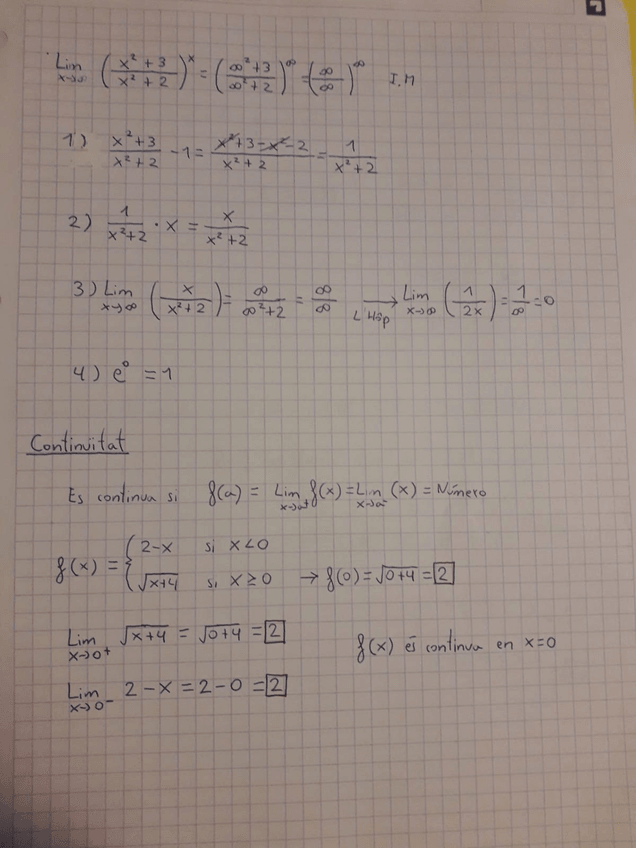 Lim x→∞ ( (x² + 3)/(x² + 2) )^x = ( (∞² + 3)/(∞² + 2) )^∞ = ( ∞/∞ )^∞ I.M
1) (x² + 3)/(x² + 2) - 1 = (x² + 3 - x² - 2)/(x² + 2) = 1/(x² + 2)
2) 1/(x² + 2) · x = x/(x² + 2)
3) Lim x→∞ ( x/(x² + 2) ) = ∞/(∞² + 2) = ∞/∞ → L'Hôp Lim x→∞ ( 1/(2x) ) = 1/∞ = 0
4) e⁰ = 1
Continuitat
Es continua si f(a) = Lim x→a⁺ f(x) = Lim x→a⁻ (x) = Número
f(x) = { 2-x si x<0
√(x+4) si x ≥ 0 → f(0) = √(0+4) = 2
Lim x→0⁺ √(x+4) = √(0+4) = 2
f(x) és continua en x=0
Lim x→0⁻ 2 - x = 2 - 0 = 2